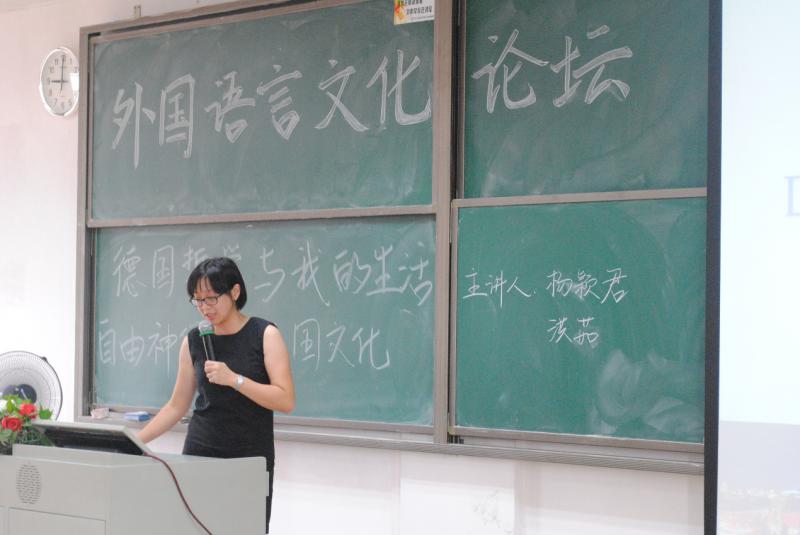 外国语言文化论坛
德国哲学与我的生活
自由神 国文化
主讲人:杨颖君
洪茹